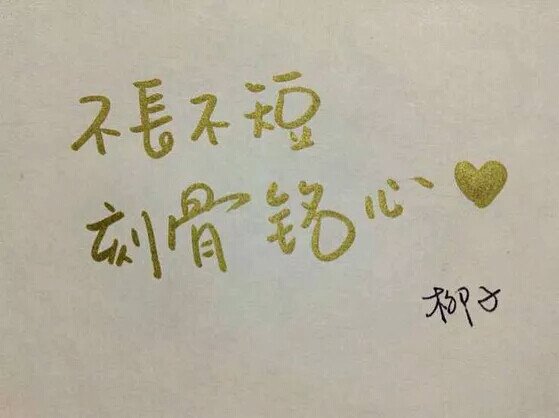 不長不短
刻骨铭心
柳子